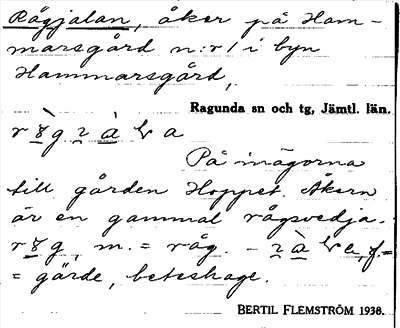 Rågjalan, åker på Ham-
marsgård n:r 1 i byn
Hammarsgård,
Ragunda sn och tg, Jämtl. län.
På inägorna
till gården Hoppet. Åkern
är en gammal rågsvedja.
m. = råg. - f. =
= gärde, beteshage.
BERTIL FLEMSTRÖM 1938.